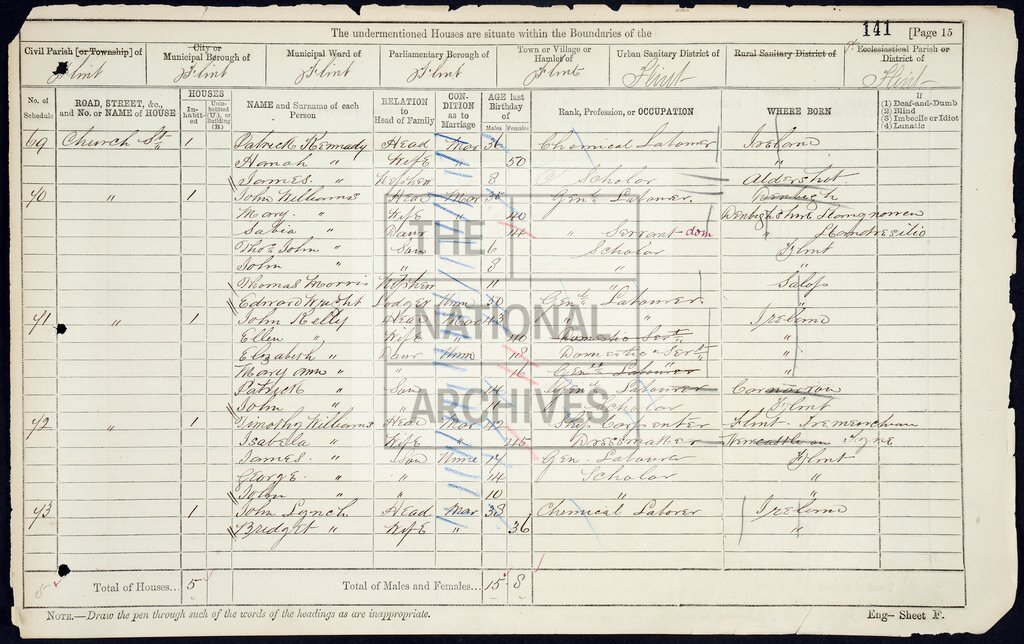 The undermentioned Houses are situate within the Boundaries of the 141 [Page 15
Civil Parish [or Township] of City or Municipal Borough of Municipal Ward of Parliamentary Borough of Town or Village or Hamlet of Urban Sanitary District of Rural Sanitary District of Ecclesiastical Parish or District of
Flint Flint Flint Flint Flint Flint Flint
No. of Schedule ROAD, STREET, &c., and No. or NAME of HOUSE HOUSES In-habited Uninhabited (U.), or Building (B.) NAME and Surname of each Person RELATION to Head of Family CONDITION as to Marriage AGE last Birthday of Males Females Rank, Profession, or OCCUPATION WHERE BORN If (1) Deaf-and-Dumb (2) Blind (3) Imbecile or Idiot (4) Lunatic
69 Church St 1 Patrick Kennedy Head Mar 36 Chemical Labourer Ireland
Hanah " Wife " 50 "
James " Nephew 8 Scholar Aldershot
70 " 1 John Williams Head Mar 38 Genl Labourer Denbigh
Mary " Wife " 40 Denbighshire
Sabia " Daur 14 " Servant dom "
Thos John " Son 6 Scholar Flint
John " " 8 " "
Thomas Morris Nephew 11 " Salop
Edward Wright Lodger Unm 50 Genl Labourer "
71 " 1 John Kelly Head Mar 43 " " Ireland
Ellen " Wife " 40 Domestic Sert "
Elizabeth " Daur Unm 18 Domestic Sert "
Mary Ann " " 16 Genl Labourer "
Patrick " Son 14 Genl Labourer
John " " 11 Scholar Flint
72 " 1 Timothy Williams Head Mar 42 Ship Carpenter Flint Tremeirchion
Isabella " Wife " 45 Dressmaker Newcastle on Tyne
James " Son Unm 17 Gen Labourer Flint
George " " 14 Scholar "
John " " 10 " "
73 1 John Lynch Head Mar 38 Chemical Laborer Ireland
Bridget " Wife " 36 "
Total of Houses... 5 Total of Males and Females... 15 8
NOTE.—Draw the pen through such of the words of the headings as are inappropriate. Eng— Sheet F.
THE
NATIONAL
ARCHIVES